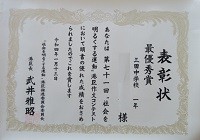 表彰状
最優秀賞
三田中学校 一年
様
あなたは第七十一回“社会を
明るくする運動”港区作文コンテスト
において頭書の優れた成績をおさめ
られましたのでこれを賞します
令和四年
港区長 武井雅昭